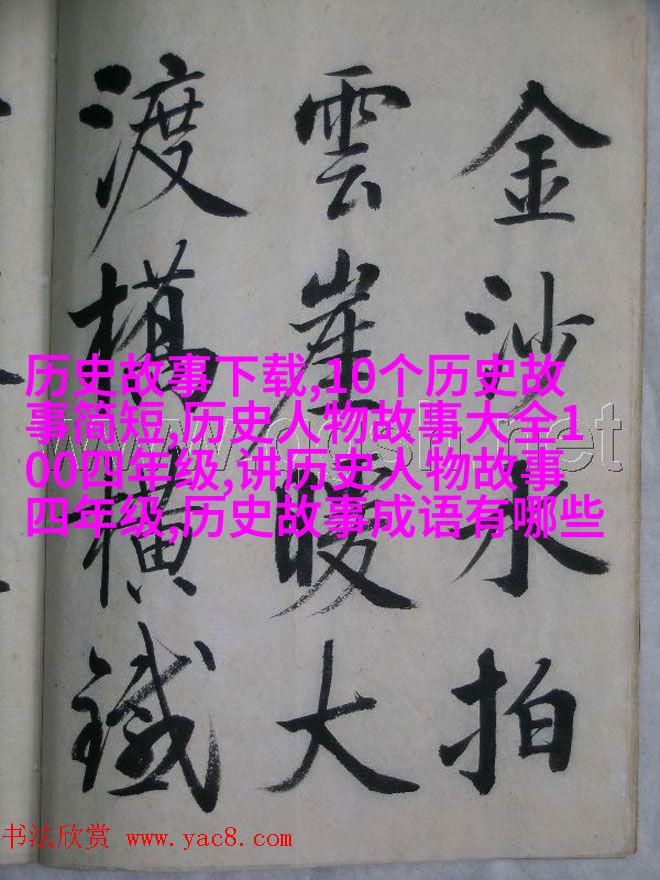 金沙水拍
雲崖暖大
渡橋橫鐵
历史故事下载,10个历史故
事简短,历史人物故事大全1
00四年级,讲历史人物故事
四年级,历史故事成语有哪些
书法欣赏 www.yac8.com